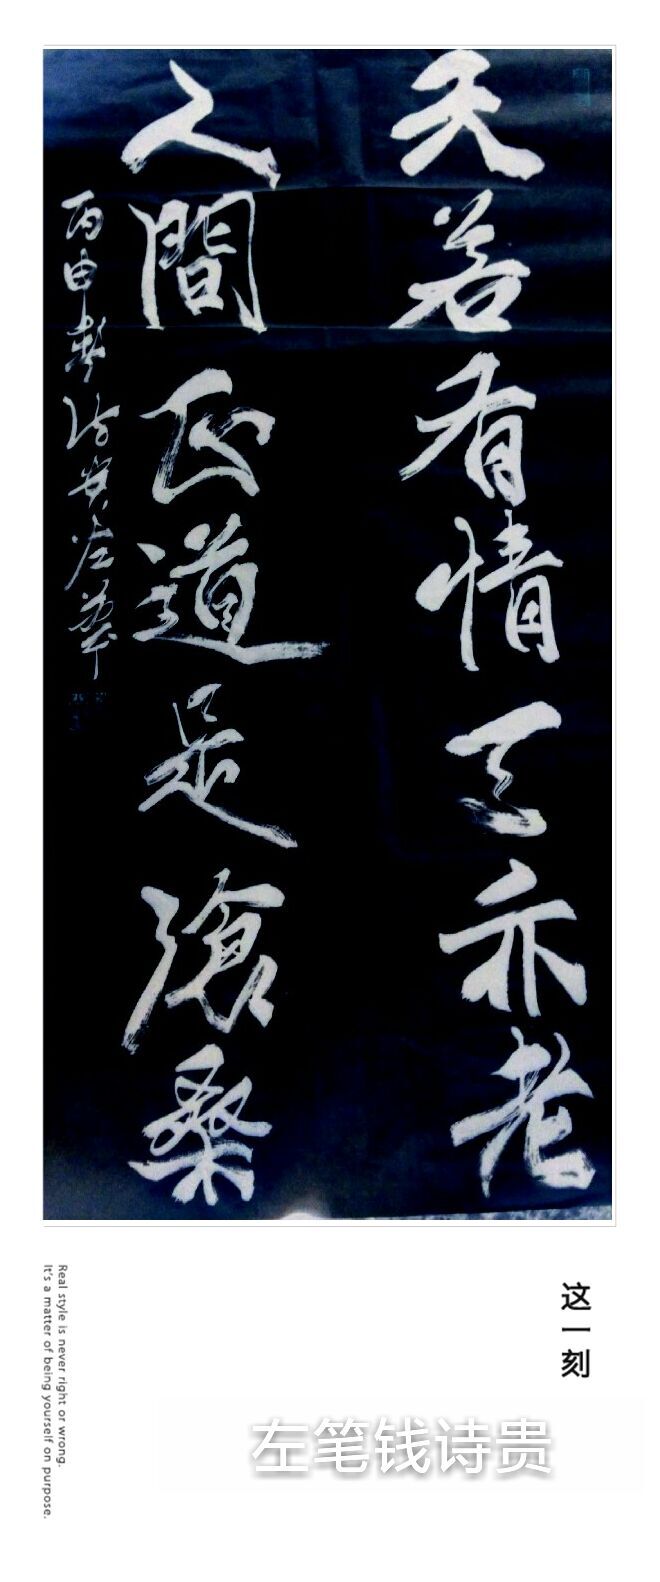 天若有情天亦老
人間正道是滄桑
丙申
这一刻
左笔钱诗贵
Real style is never right or wrong.
It's a matter of being yourself on purpose.